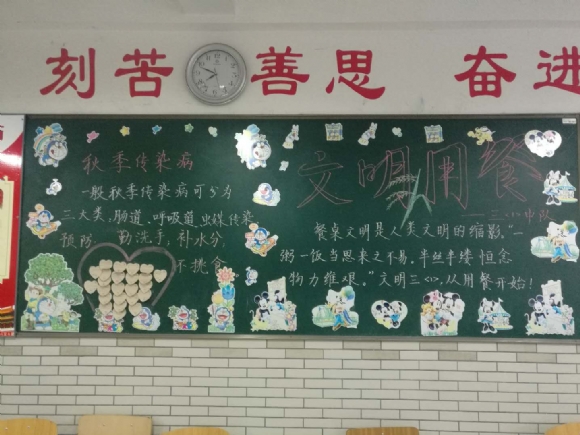 刻苦 善思 奋进
秋季传染病
一般秋季传染病可分为
三大类、肠道、呼吸道、虫媒传染
预防. 勤洗手, 补水分,
不挑食
文明用餐
——三〈八〉中队
餐桌文明是人类文明的缩影,“一
粥一饭当思来之不易,半丝半缕恒念
物力维艰。”文明三〈八〉,从用餐开始!